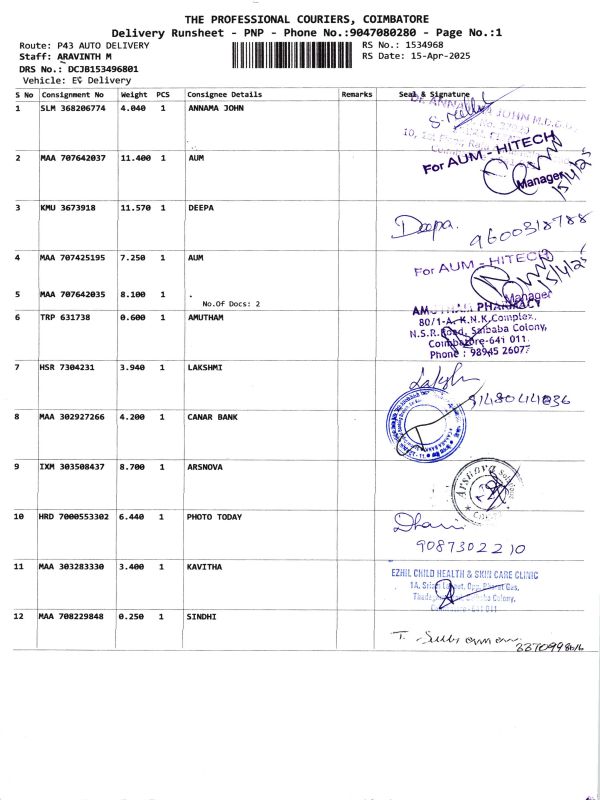 THE PROFESSIONAL COURIERS, COIMBATORE
Delivery Runsheet - PNP - Phone No.:9047080280 - Page No.:1
Route: P43 AUTO DELIVERY
RS No.: 1534968
Staff: ARAVINTH M
RS Date: 15-Apr-2025
DRS No.: DCJB153496801
Vehicle: EV Delivery
S No Consignment No Weight PCS Consignee Details Remarks Seal & Signature
1 SLM 368206774 4.040 1 ANNAMA JOHN
2 MAA 707642037 11.400 1 AUM
For AUM - HITECH
Manager
15/4/25
3 KMU 3673918 11.570 1 DEEPA
Deepa.
9600318788
4 MAA 707425195 7.250 1 AUM
For AUM - HITECH
Manager
15/4/25
5 MAA 707642035 8.100 1 .
No.Of Docs: 2
6 TRP 631738 0.600 1 AMUTHAM
AMUTHAM PHARMACY
80/1-A, K.N.K.Complex,
N.S.R.Road, Saibaba Colony,
Coimbatore-641 011.
Phone : 98945 26077
7 HSR 7304231 3.940 1 LAKSHMI
8 MAA 302927266 4.200 1 CANAR BANK
9 IXM 303508437 8.700 1 ARSNOVA
Arsnova
10 HRD 7000553302 6.440 1 PHOTO TODAY
9087302210
11 MAA 303283330 3.400 1 KAVITHA
EZHIL CHILD HEALTH & SKIN CARE CLINIC
12 MAA 708229848 0.250 1 SINDHI